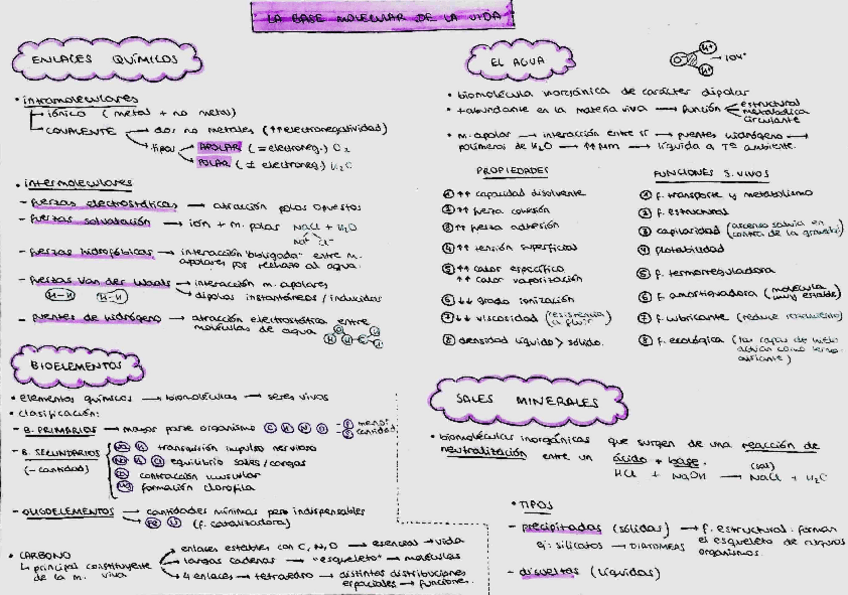 LA BASE MOLECULAR DE LA VIDA
ENLACES QUÍMICOS
• intramoleculares
iónico (metal + no metal)
COVALENTE → dos no metales (↑↑electronegatividad)
tipos
APOLAR (= electroneg.) O2
POLAR (≠ electroneg.) H2O
• intermoleculares
- fuerzas electrostáticas → atracción polos opuestos
- fuerzas solvatación → ión + m. polar NaCl + H2O
Na+ Cl-
- fuerzas hidrofóbicas → interacción "obligada" entre m. apolares por rechazo al agua.
- fuerzas Van der Waals → interacción m. apolares
H-H H-H → dipolos instantáneos/inducidos
- puentes de hidrógeno → atracción electrostática entre moléculas de agua
BIOELEMENTOS
• elementos químicos → biomoléculas → seres vivos
• clasificación:
- B. PRIMARIOS → mayor parte organismo C H N O - P S menor cantidad
- B. SECUNDARIOS (- cantidad)
Na K transmisión impulso nervioso
Na K Cl equilibrio sales/cargas
Ca contracción muscular
Mg formación clorofila
- OLIGOELEMENTOS → cantidades mínimas pero indispensables
→ Fe (f. catalizadora)
• CARBONO
↳ principal constituyente de la m. viva
→ enlaces estables con C, N, O → esencial → vida
→ largas cadenas → "esqueleto" → moléculas
→ 4 enlaces → tetraedro → distintas distribuciones espaciales → funciones.
EL AGUA
O H+ H+ → 104°
• biomolécula inorgánica de carácter dipolar
• + abundante en la materia viva → función
estructural
metabólica
circulante
• m. apolar → interacción entre sí → puentes hidrógeno →
polímeros de H2O → ↑↑ Mm → líquida a Tª ambiente.
PROPIEDADES
1 ↑↑ capacidad disolvente
2 ↑↑ fuerza cohesión
3 ↑↑ fuerza adhesión
4 ↑↑ tensión superficial
5 ↑↑ calor específico
↑↑ calor vaporización
6 ↓↓ grado ionización
7 ↓↓ viscosidad (resistencia a fluir)
8 densidad líquido > sólido.
FUNCIONES S. VIVOS
1 f. transporte y metabolismo
2 f. estructural
3 capilaridad (ascenso salvia en contra de la gravedad)
4 flotabilidad
5 f. termorreguladora
6 f. amortiguadora (molécula muy estable)
7 f. lubricante (reduce rozamiento)
8 f. ecológica (las capas de hielo actúan como termo-aislante)
SALES MINERALES
• biomoléculas inorgánicas que surgen de una reacción de
neutralización entre un ácido + base.
(sal)
HCl + NaOH → NaCl + H2O
• TIPOS
- precipitadas (sólidas) → f. estructural. forman
ej: silicatos → DIATOMEAS
el esqueleto de algunos organismos.
- disueltas (líquidas)